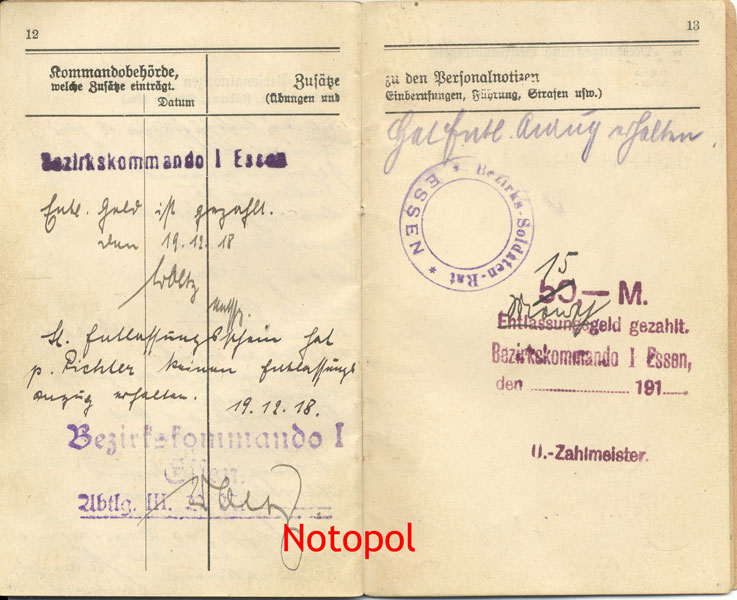 12
Kommandobehörde,
welche Zusätze einträgt.
Datum
Zusätze
(Übungen und
Bezirkskommando I Essen
Entl. Geld ist gezahlt.
den 19.12.18
Lt. Entlassungsschein hat
p. Richter keinen Entlassungs
anzug erhalten.
19.12.18.
Bezirkskommando I
Essen.
Abtlg. III.
13
zu den Personalnotizen
Einberufungen, Führung, Strafen usw.)
Hat Entl. Anzug erhalten.
* Bezirks-Soldaten-Rat * ESSEN
15
50 — M.
Entlassungsgeld gezahlt.
Bezirkskommando I Essen,
den ............ 191......
U.-Zahlmeister.
Notopol